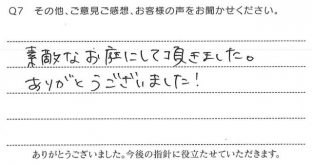 Q7 その他、ご意見ご感想、お客様の声をお聞かせください。
素敵なお庭にして頂きました。
ありがとうございました！
ありがとうございました。今後の指針に役立たせていただきます。